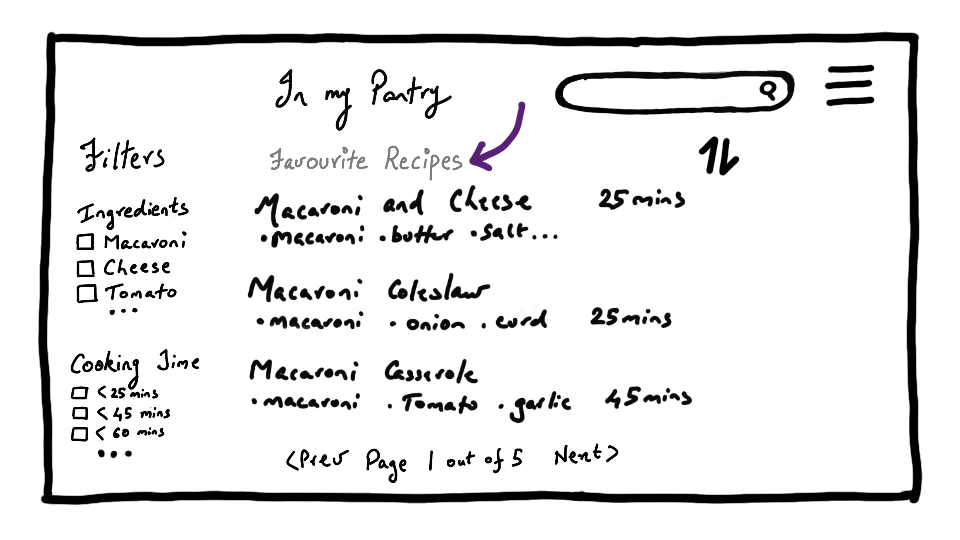 In my Pantry
Filters
Ingredients
Macaroni
Cheese
Tomato
...
Cooking Time
< 25 mins
< 45 mins
< 60 mins
...
Favourite Recipes
Macaroni and Cheese 25 mins
• macaroni • butter • salt...
Macaroni Coleslaw
• macaroni • onion • curd 25 mins
Macaroni Casserole
• macaroni • Tomato • garlic 45 mins
<Prev Page 1 out of 5 Next>